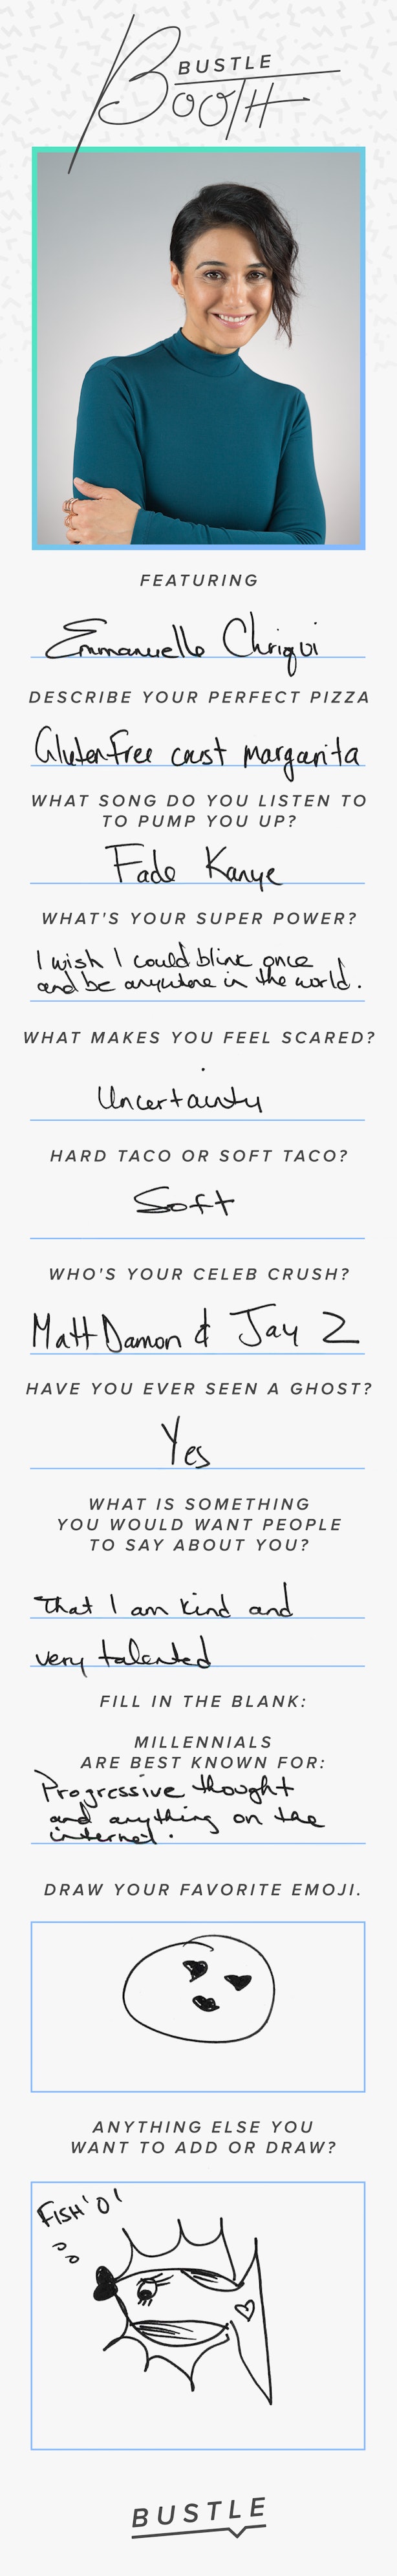 BUSTLE
BOOTH
FEATURING
Emmanuelle Chriqui
DESCRIBE YOUR PERFECT PIZZA
Gluten Free crust margarita
WHAT SONG DO YOU LISTEN TO
TO PUMP YOU UP?
Fade Kanye
WHAT'S YOUR SUPER POWER?
I wish I could blink once
and be anywhere in the world.
WHAT MAKES YOU FEEL SCARED?
Uncertainty
HARD TACO OR SOFT TACO?
Soft
WHO'S YOUR CELEB CRUSH?
Matt Damon & Jay Z
HAVE YOU EVER SEEN A GHOST?
Yes
WHAT IS SOMETHING
YOU WOULD WANT PEOPLE
TO SAY ABOUT YOU?
That I am kind and
very talented
FILL IN THE BLANK:
MILLENNIALS
ARE BEST KNOWN FOR:
Progressive thought
and anything on the
internet.
DRAW YOUR FAVORITE EMOJI.
ANYTHING ELSE YOU
WANT TO ADD OR DRAW?
FISH 'O'
BUSTLE